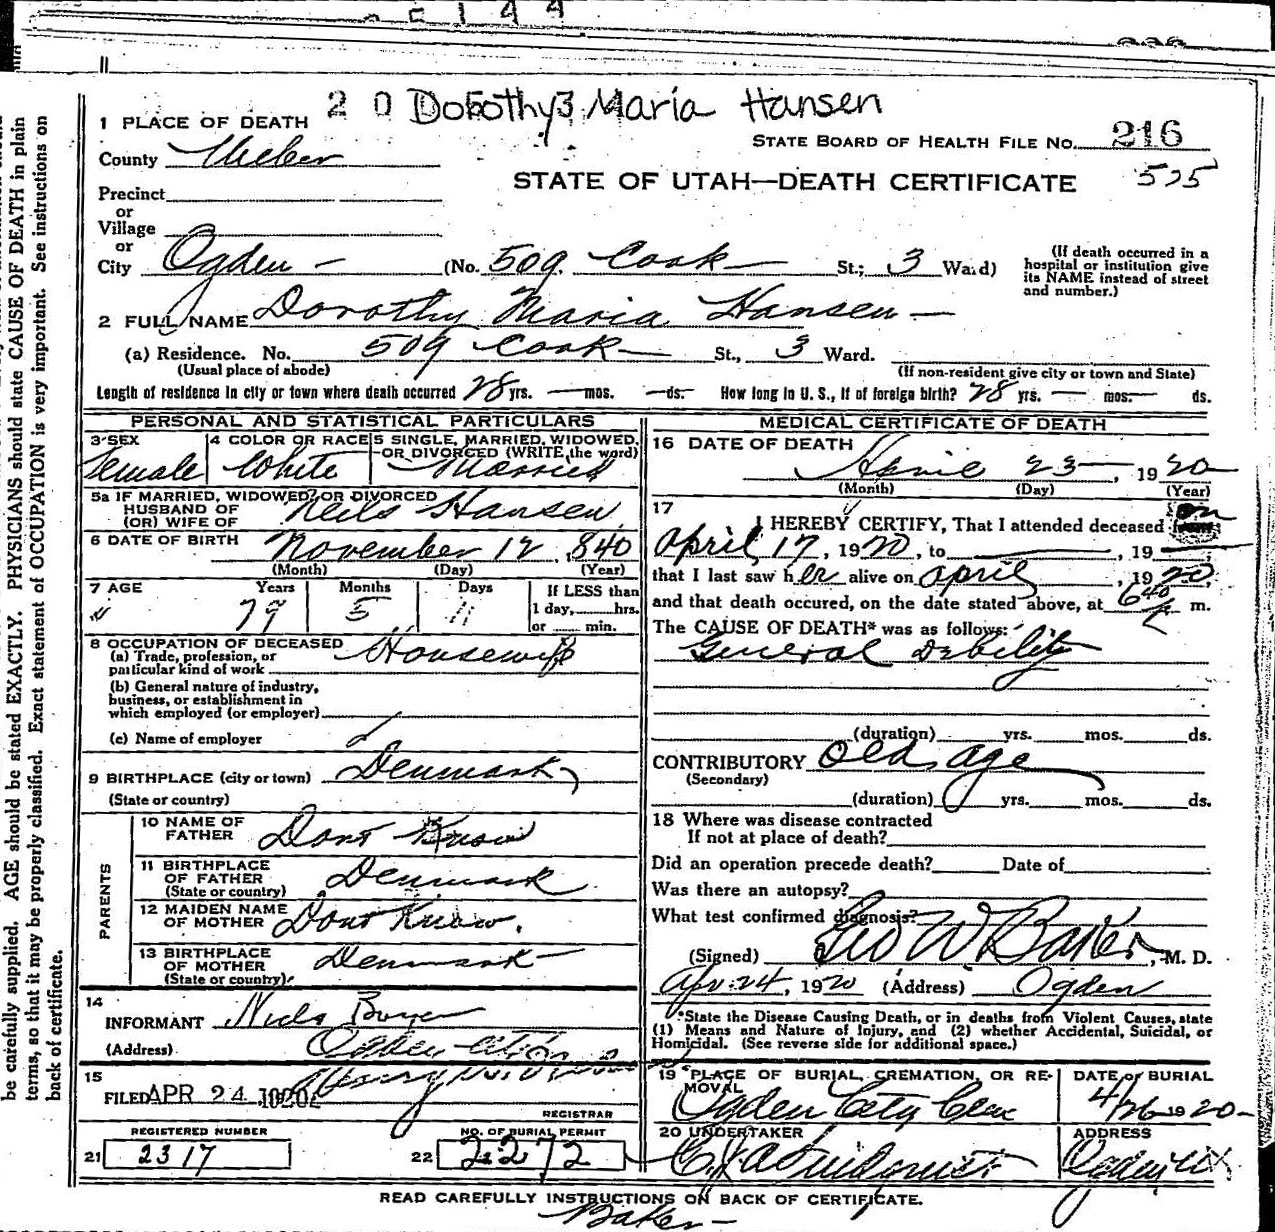 2 0 Dorothy Maria Hansen
1 PLACE OF DEATH
STATE BOARD OF HEALTH FILE No. 216
County Weber
STATE OF UTAH—DEATH CERTIFICATE 525
Precinct
or
Village
or
City Ogden — (No. 509 Cook — St.; 3 Ward)
(If death occurred in a hospital or institution give its NAME instead of street and number.)
2 FULL NAME Dorothy Maria Hansen —
(a) Residence. No. 509 Cook — St., 3 Ward.
(Usual place of abode) (If non-resident give city or town and State)
Length of residence in city or town where death occurred 28 yrs. — mos. — ds. How long in U. S., if of foreign birth? 28 yrs. — mos. ds.
PERSONAL AND STATISTICAL PARTICULARS
3 SEX Female
4 COLOR OR RACE White
5 SINGLE, MARRIED, WIDOWED, OR DIVORCED (WRITE the word) Married
5a IF MARRIED, WIDOWED, OR DIVORCED
HUSBAND OF
(OR) WIFE OF Neils Hansen
6 DATE OF BIRTH November 12, 840
(Month) (Day) (Year)
7 AGE Years Months Days If LESS than
79 5 11 1 day, hrs.
or min.
8 OCCUPATION OF DECEASED
(a) Trade, profession, or
particular kind of work Housewife
(b) General nature of industry,
business, or establishment in
which employed (or employer)
(c) Name of employer
9 BIRTHPLACE (city or town) Denmark
(State or country)
PARENTS
10 NAME OF
FATHER Dont Know
11 BIRTHPLACE
OF FATHER Denmark
(State or country)
12 MAIDEN NAME
OF MOTHER Dont Know.
13 BIRTHPLACE
OF MOTHER Denmark
(State or country)
14
INFORMANT Niels
(Address) Ogden
15
FILED APR 24 1920 Henry
REGISTRAR
REGISTERED NUMBER
21 2317
NO. OF BURIAL PERMIT
22 2272
MEDICAL CERTIFICATE OF DEATH
16 DATE OF DEATH
April 23 — , 1920
(Month) (Day) (Year)
17
I HEREBY CERTIFY, That I attended deceased on
April 17, 1920, to —, 19 —
that I last saw her alive on April, 1920,
and that death occured, on the date stated above, at 640 P m.
The CAUSE OF DEATH* was as follows:
General Debility
(duration) yrs. mos. ds.
CONTRIBUTORY Old age
(Secondary)
(duration) yrs. mos. ds.
18 Where was disease contracted
If not at place of death?
Did an operation precede death? Date of
Was there an autopsy?
What test confirmed diagnosis?
(Signed) Geo W Baker, M. D.
Apr. 24, 1920 (Address) Ogden
*State the Disease Causing Death, or in deaths from Violent Causes, state
(1) Means and Nature of Injury, and (2) whether Accidental, Suicidal, or
Homicidal. (See reverse side for additional space.)
19 PLACE OF BURIAL, CREMATION, OR RE-
MOVAL
Ogden City Cem
DATE of BURIAL
4/26 1920 —
20 UNDERTAKER
ADDRESS
Ogden
READ CAREFULLY INSTRUCTIONS ON BACK OF CERTIFICATE.
Baker —
be carefully supplied. AGE should be stated EXACTLY. PHYSICIANS should state CAUSE OF DEATH in plain
terms, so that it may be properly classified. Exact statement of OCCUPATION is very important. See instructions on
back of certificate.